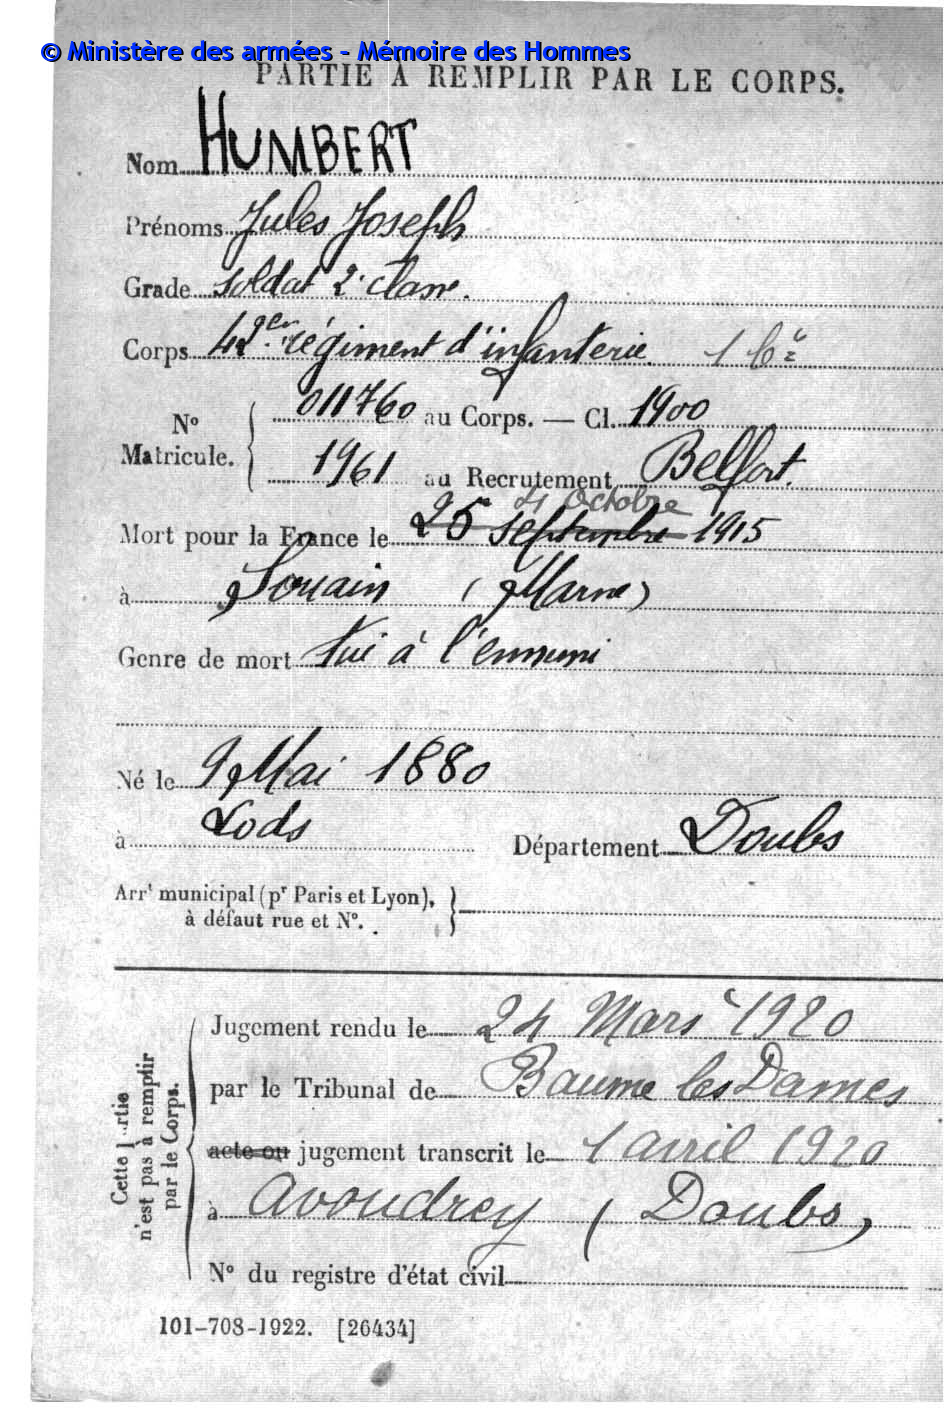 © Ministère des armées - Mémoire des Hommes
PARTIE À REMPLIR PAR LE CORPS.
Nom HUMBERT
Prénoms Jules Joseph
Grade soldat 2e classe.
Corps 42e régiment d'infanterie
No Matricule. 011760 au Corps. — Cl. 1900
1961 au Recrutement Belfort.
4 Octobre
Mort pour la France le 25 septembre 1915
à Souain (Marne)
Genre de mort Tué à l'ennemi
Né le 9 Mai 1880
à Lods Département Doubs
Arrt municipal (pr Paris et Lyon),
à défaut rue et N°.
Cette partie
n'est pas à remplir
par le Corps.
Jugement rendu le 24 Mars 1920
par le Tribunal de Baume les Dames
acte ou jugement transcrit le 1 avril 1920
à Avoudrey (Doubs)
N° du registre d'état civil
101-708-1922. [26434]